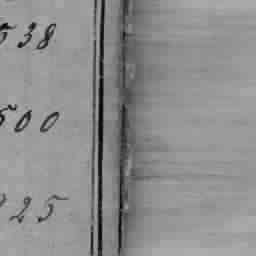 538
500
25